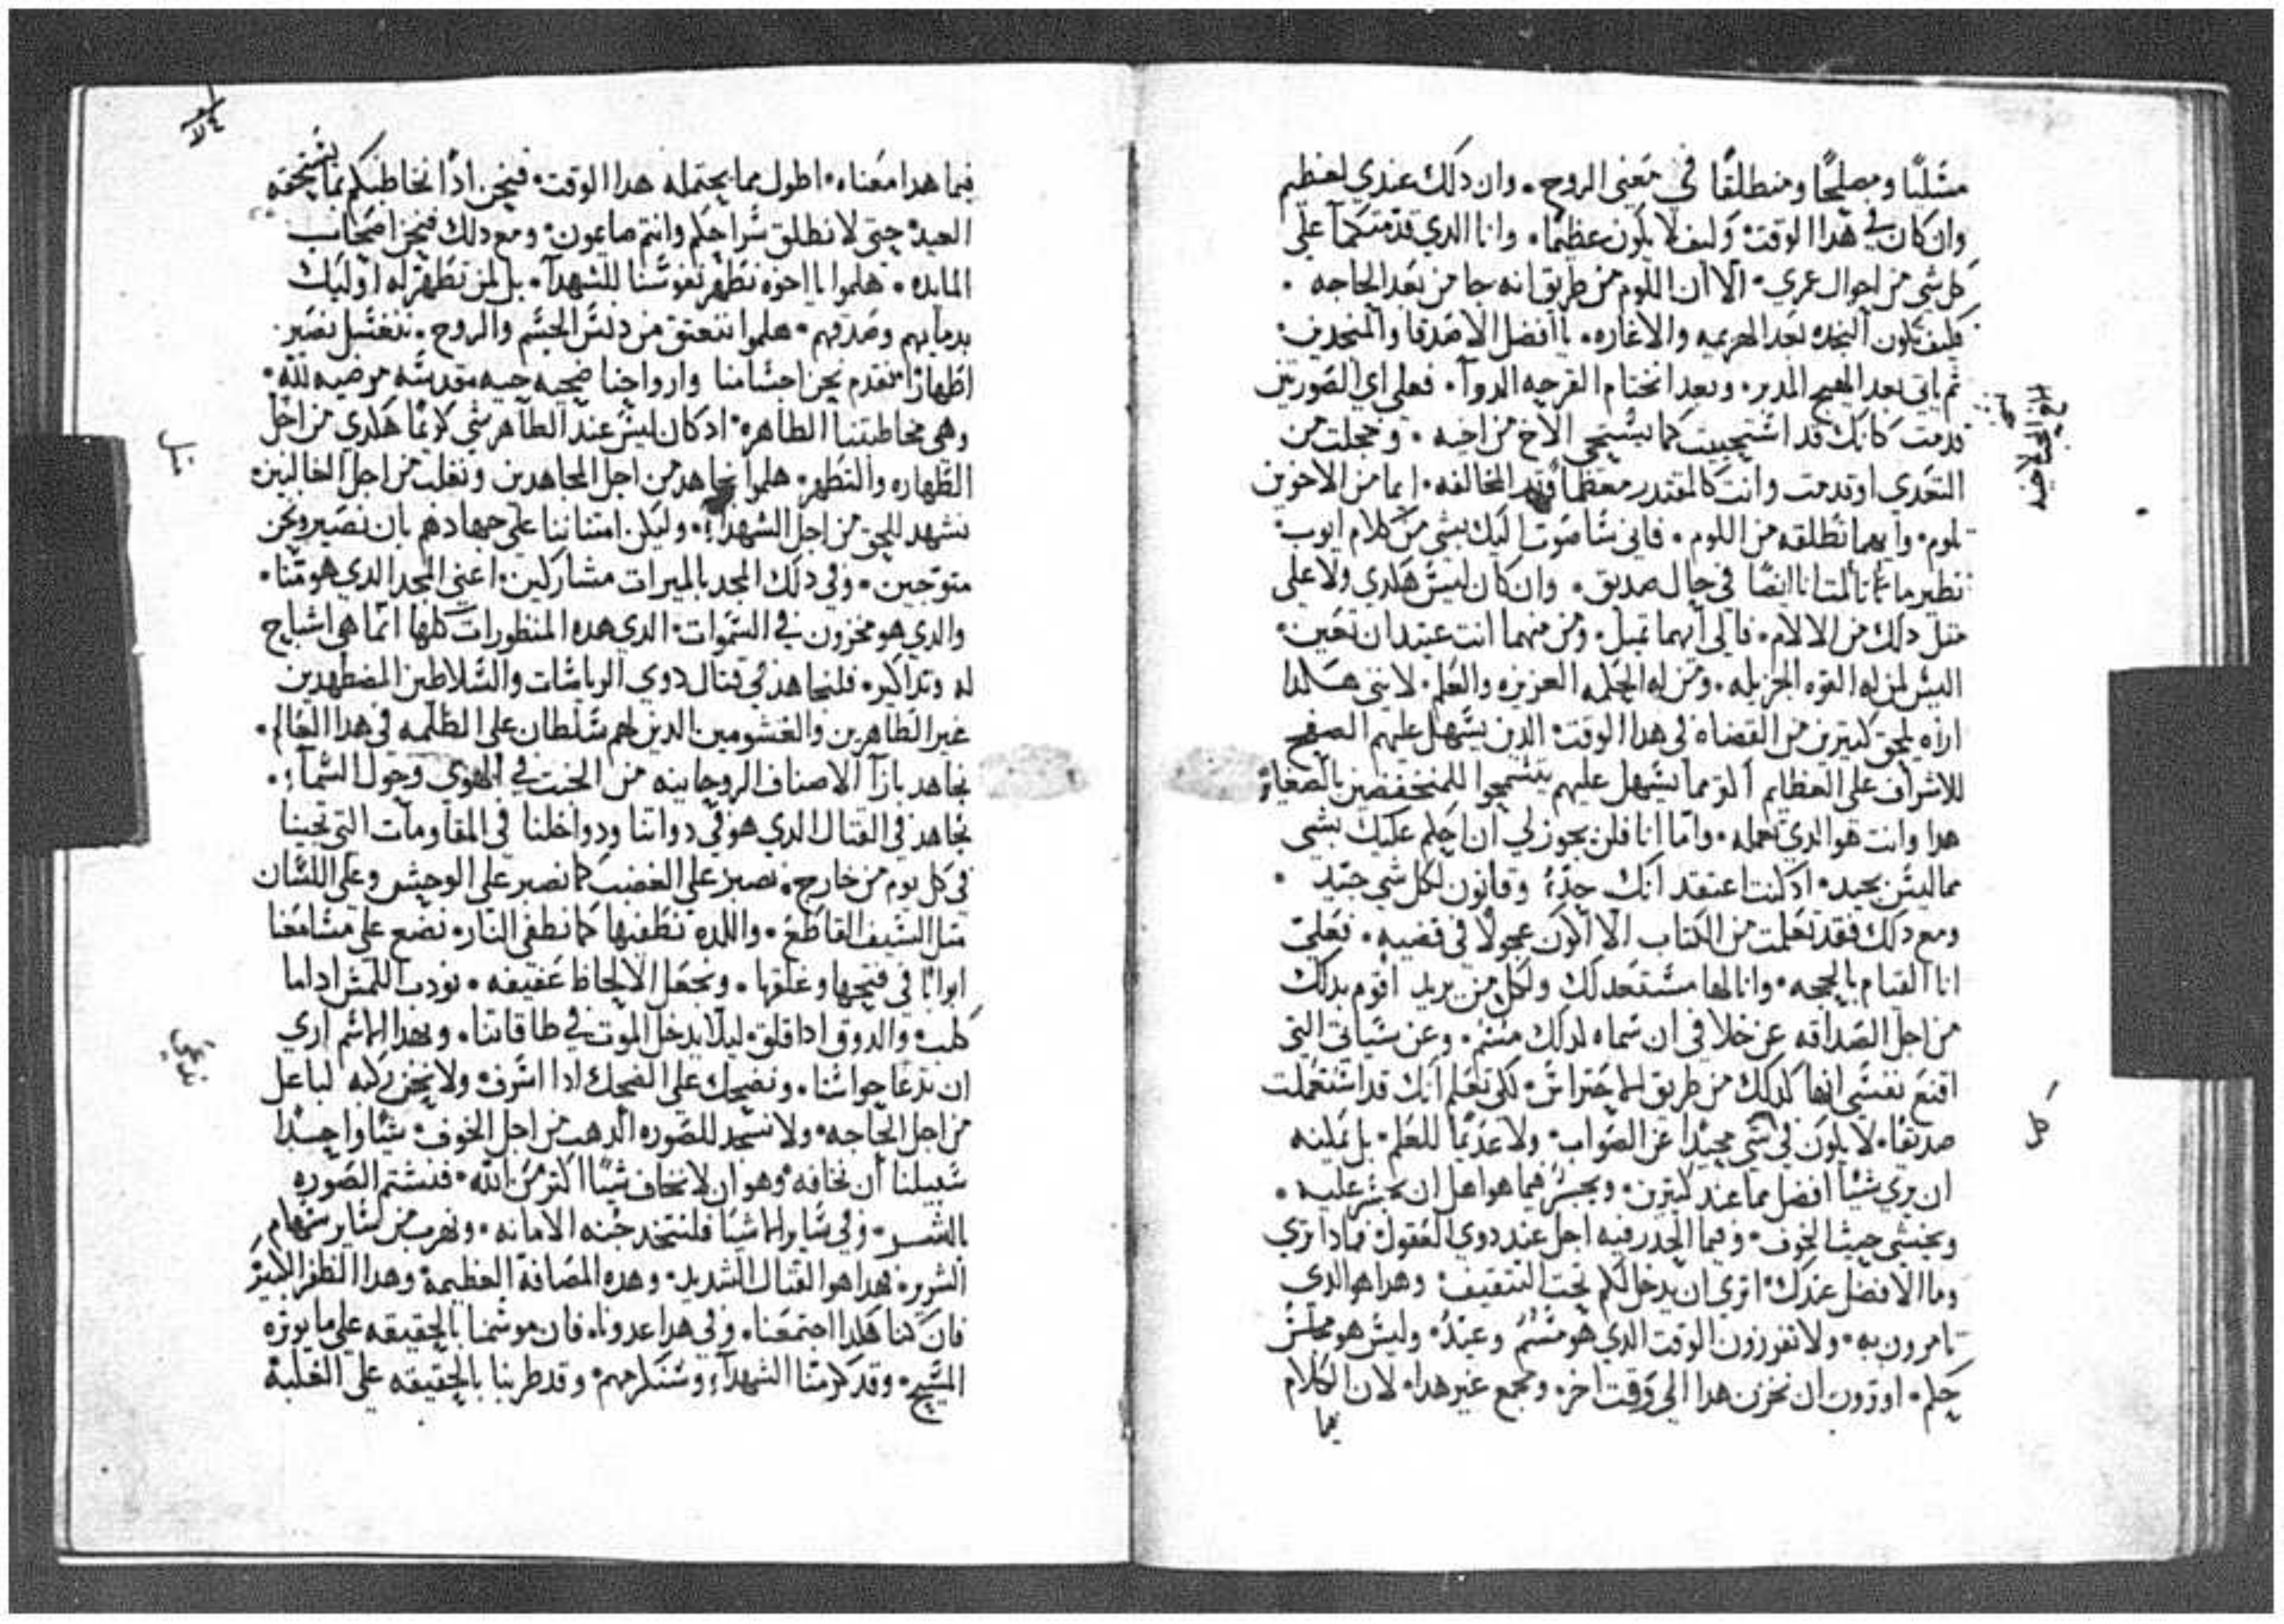 مسَليًا ومصلحًا ومنطلقًا في مَعني الروح . وان دلك عندي لعظيم
وان كان في هدا الوقت وكيف لا يكون عظيمًا . وانا الدي قدمتكما علي
كل شي من احوال عمري . الا ان اللوم من طريق انه جا من بَعد الحاجه .
فكيف تكون النجده بعد الهزيمه والاغاره . يا افضل الاصدقا والمنجدين
ثم ياتي بعد الهيج المدبر . وبعد انختام القرحه الدوآ . فعلي اي الصَورتين
قدمت كانك قد استحييت كما يستحي الاخ من اخيه . وخجلت من
التعدي او قدمت وانت كالمقتدر معظمًا المخالفه . ايما من الاخوين
تلوم . وايهما تطلقه من اللوم . فاني سَاصَوت اليك بشي من كلام ايوب
نظير ما انا ايضًا في حال صديق . وان كان ليسَ هكدي ولا علي
متل دلك من الالام . فالي ايهما تميل . ومن منهما انت عتيد ان تعَين
اليسَ لمن له القوه الجزيله . ومن له الحكمه العزيزه والعَلم . لانني هكدا
اراه يلحق كتيرين من القضاه في هدا الوقت الدين يسَهل عليهم الصفح
للاشراف علي العظايم اكتر مما يسَهل عليهم يسَمحوا للمنخفضين بالصغاير
هدا وانت هو الدي تعمله . وامّا انا فلن يجوز لي ان احكم عليك بشي
مما ليسَ بجيد . اد كنت اعتقد انك حدًا وقانون لكل شي جيّد .
ومع دلك فقد تعَلمت من الكتاب الا اكون عجولًا في قضيه . فعَليّ
انا القيام بالحجه . وانا لها مسَتعَد لك ولكل من يريد اقوم بدلك
من اجل الصَداقه عن خلافي ان سَماه لدلك مسَمّ . وعن سَياتي التي
اقنع نفسَي انها كدلك من طريق الاحتراسَ . لكي تعَلم انك قد اسَتعَملت
صديقًا . لا يكون في شي محيدًا عن الصَواب . ولا عَديمًا للعَلم . بل يمكنه
ان يري شيًا افضل مما عند كتيرين . ويجسَر فيما هو اهل ان يجسَر عليه .
ويخشي حيث الخوف . وفيما الحدر فيه اجل عند دوي العَقول فمادا تري
وما الافضل عندك اتري ان يدخل لكم تحت التتقيف وهدا هو الدي
تامرون به . ولا تفرزون الوقت الدي هو مسَمّ وعيدًا وليسَ هو مجلسَ
حَكم . او ترون ان نخزن هدا الي وقت اخر . ومجمع غير هدا . لان الكلام
فيما
فيما هدا مَعناه . اطول مما يحتمله هدا الوقت . فنحن ادًا نخاطبكم بما يسَتحقه
العيد حتي لا نطلق سَراحَكم وانتم صايمون . ومع دلك فنحن اصَحاب
المايده . هلموا يا اخوه نطهر نفوسَنا للشهدآ . بل لمن تطهر له اوليك
بدمايهم وصَدقهم . هلموا ننعتق من دنسَ الجسَم والروح . ننغسَل نصَير
اطهارًا نقدم نحن اجسَامنا وارواحنا ضحيه حيه مقدسَه مرضيه لله .
وهي مخاطبتنا الطاهره . اد كان ليسَ عند الطاهر شي كريمًا هكدي من اجل
الطّهاره والتطهر . هلموا نجاهد من اجل المجاهدين ونغلب من اجل الغالبين
نشهد للحق من اجل الشهدآ . وليكن امتناننا علي جهادهم بان نصَير ونحن
متوّجين . وفي دلك المجد بالميرات مشاركين . اعني المجد الدي هو منّا .
والدي هو مخزون في السَموات . الدي هده المنظورات كلها انّما هي اشباح
له وتداكير . فلنجاهد في قتال دوي الرياسَات والسَلاطين المضطهدين
غير الظاهرين والغشومين الدين لهم سَلطان علي الظّلمه في هدا العَالم .
نجاهد بازآ الاصناف الروحانيه من الخبت في الهوي وحول السَمآ .
نجاهد في القتال الدي هو في دواتنا ودواخلنا في المقاومات التي تجينا
في كل يوم من خارج . نصبر علي الغضب كما نصبر علي الوحش وعلي اللسَان
متل السَيف القاطع . واللده نطفيها كما نطفي النار . نضع علي مسَامعَنا
ابوابًا في فتحها وغلقها . ونجعَل الالحاظ عَفيفه . نودب اللمسَ ادا ما
كلب والدوق ادا قلق . ليلا يدخل الموت في طاقاتنا . وبهدا الاسَم اري
ان تدعَا حواسَنا . ونضحك علي الضحك ادا اسَرف ولا نحني ركبه لباعل
من اجل الحَاجه . ولا نسَجد للصَوره الدهب من اجل الخوف . شيًا واحدًا
سَبيلنا ان نخافه وهو ان لا نخاف شيًا اكتر من الله . فنشتم الصَوره
بالشر . وفي سَاير الاشيا فلنتخد جُنه الامانه . ونهرب من سَاير سَهام
الشرير . فهدا هو القتال الشديد . وهده المصَافة العَظيمة وهدا الظفر الاكبر
فان كنا هكدا اجتمعَنا . وفي هدا عدونا . فان موسَمنا بالحقيقه علي ما يوتره
المسَيح . وقد كرمنا الشهدآ وسَنكرمهم وقد طربنا بالحقيقه علي الغلبة
متل
تدعي